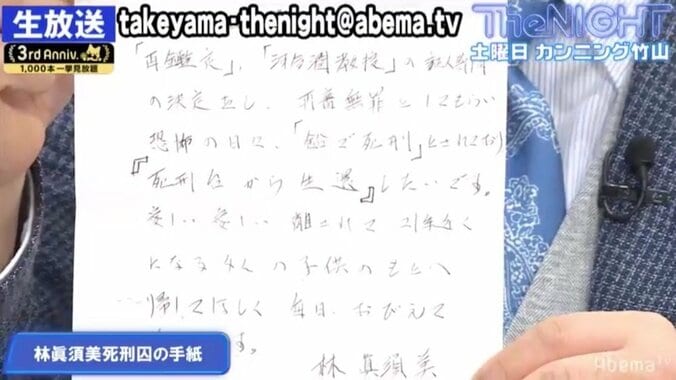 生放送
takeyama-thenight@abema.tv
TheNIGHT
3rd Anniv.
1,000本一挙見放題
土曜日 カンニング竹山
「再鑑定」、「河合潤教授」の証人尋問
の決定をし、再審無罪としてもらい
恐怖の日々、「で死刑」とされており
『死刑台から生還』したいです。
愛しい 愛しい 離されて 21年近く
になる4人の子供のもとへ
帰してほしく 毎日、おびえて
す。
林 眞須美
林眞須美死刑囚の手紙
AbemaTV